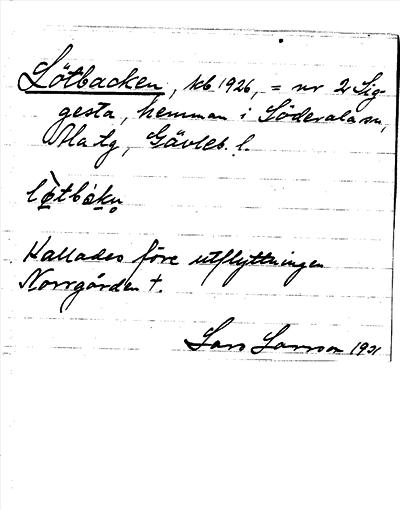 Lötbacken, kb 1926, = nr 2 Sig-
gesta, hemman i Söderala sn,
Ala tg, Gävleb. l.
lø̀tbákn̥
Kallades före utflyttningen
Norrgården †.
Lars Larsson 1921